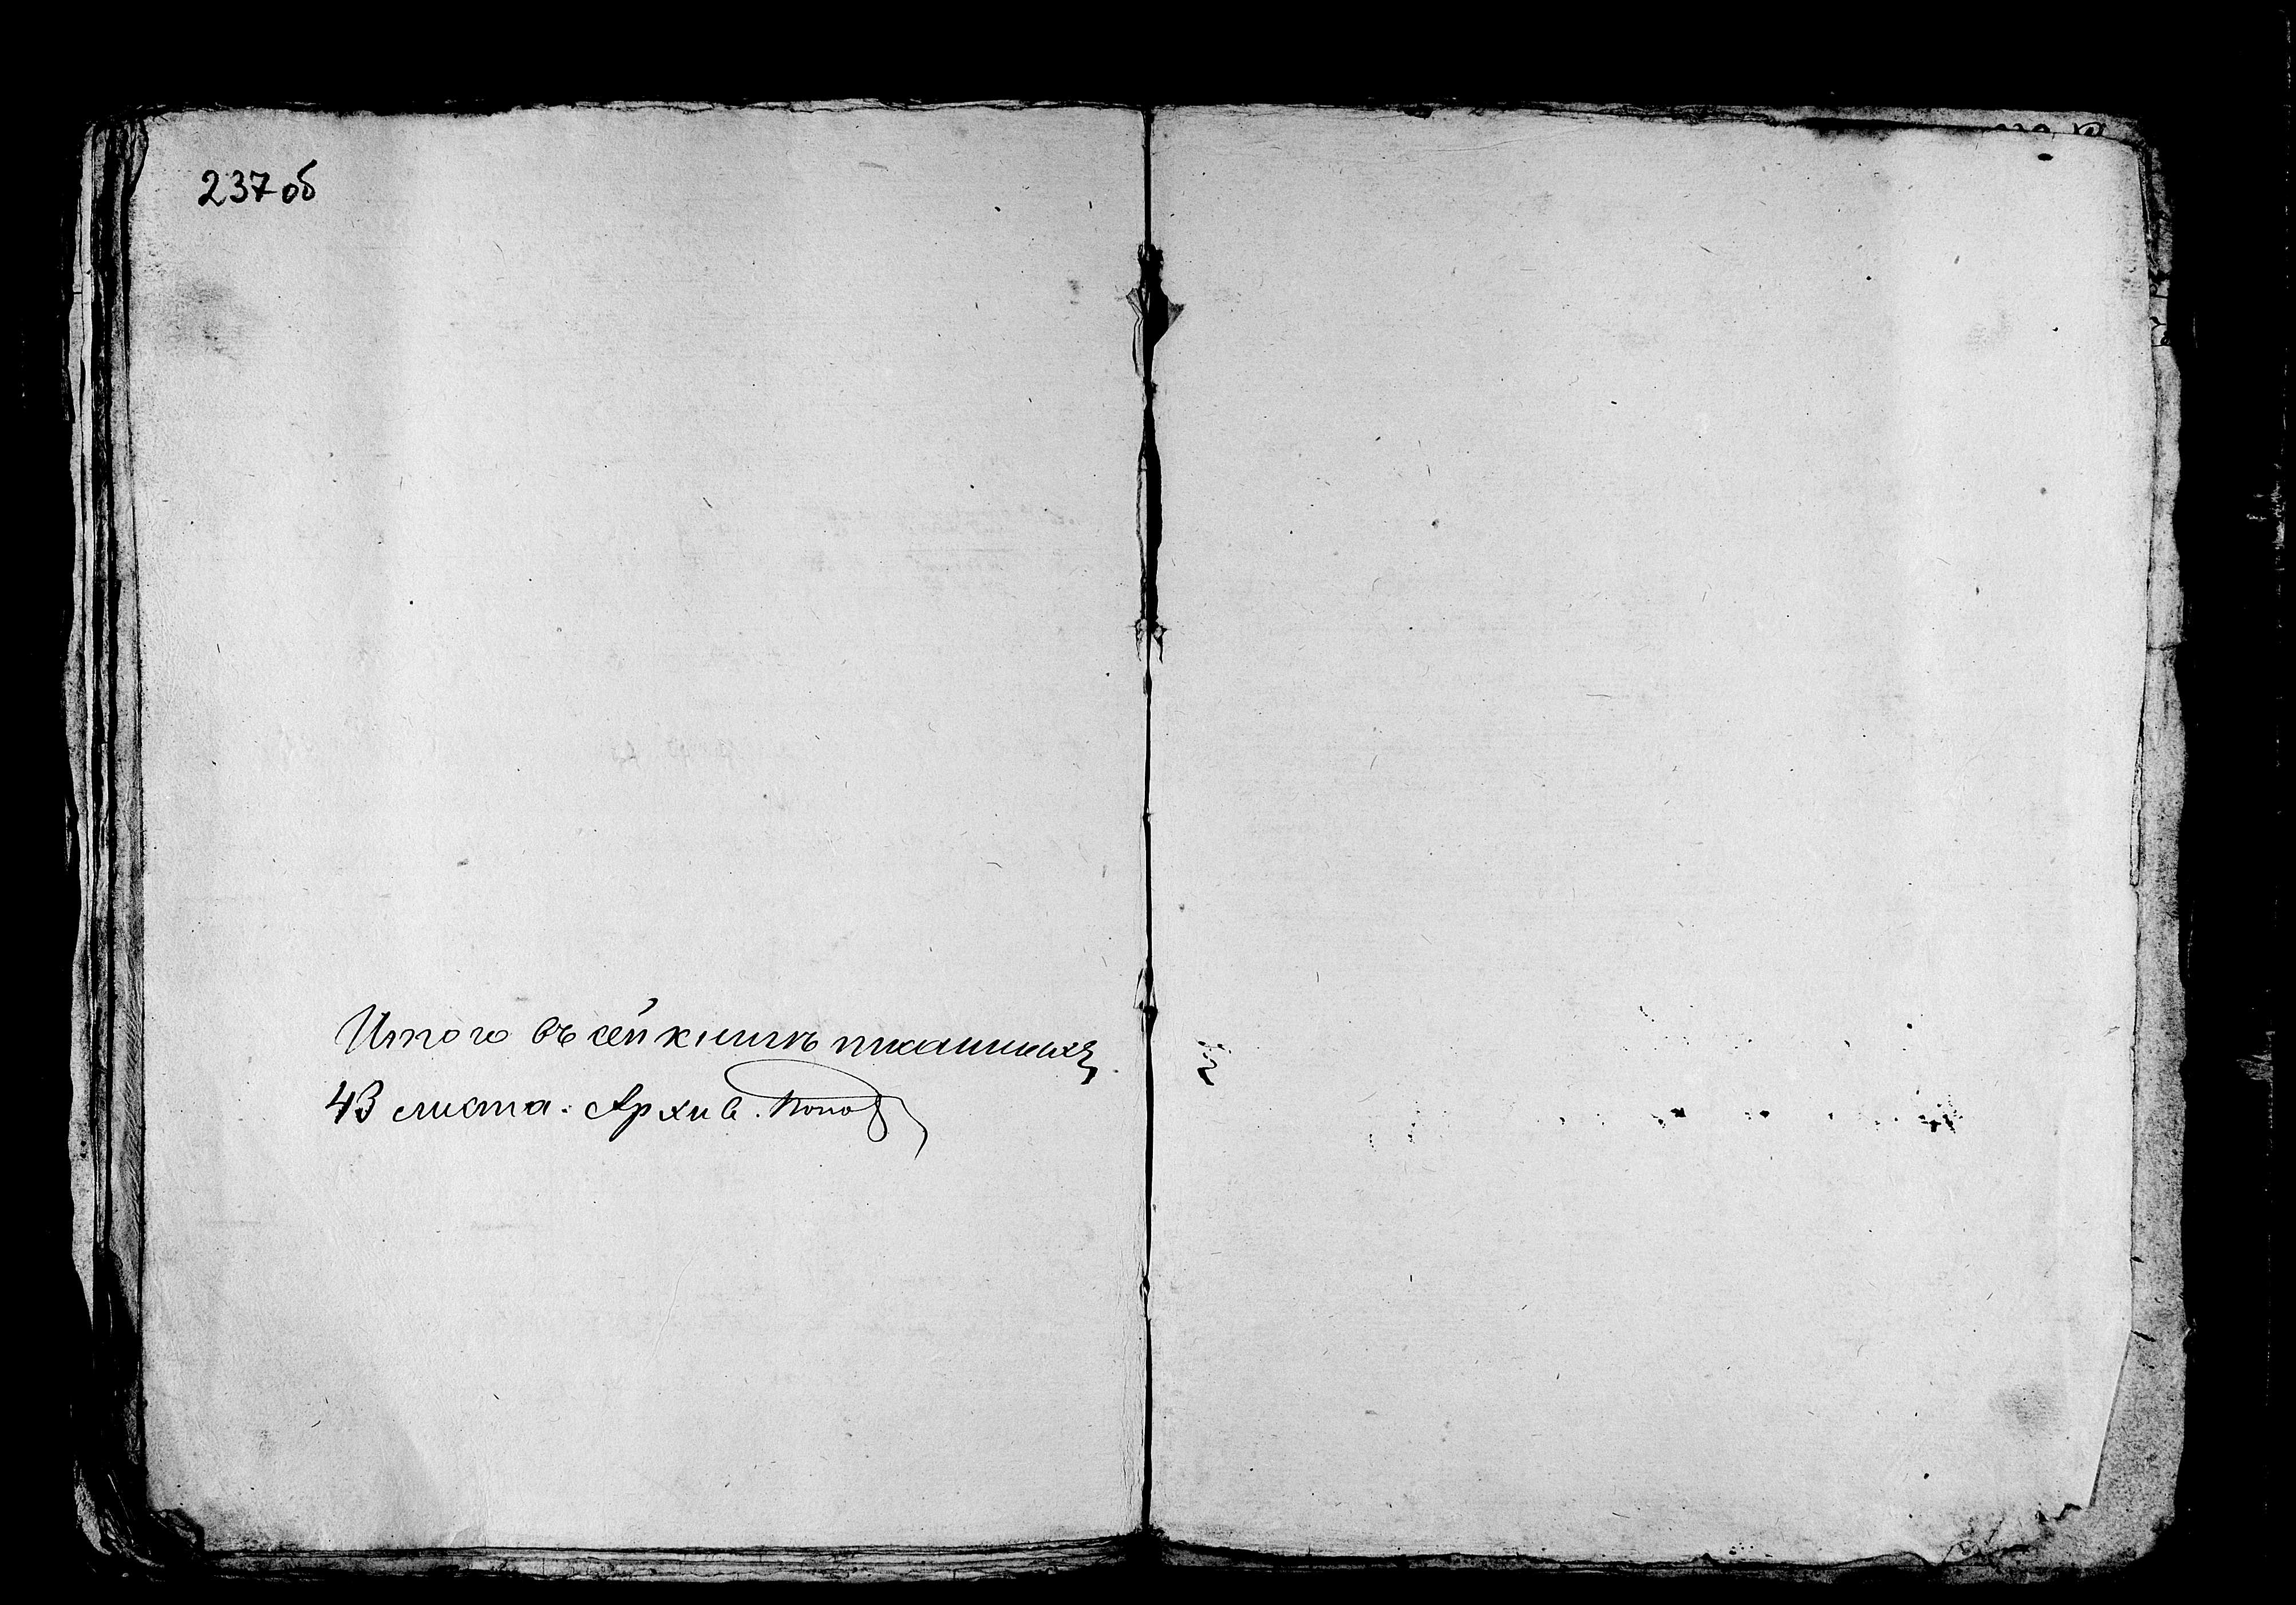 237 об
Итого въ сей книгѣ писанныхъ
43 листа. Архив. Попов